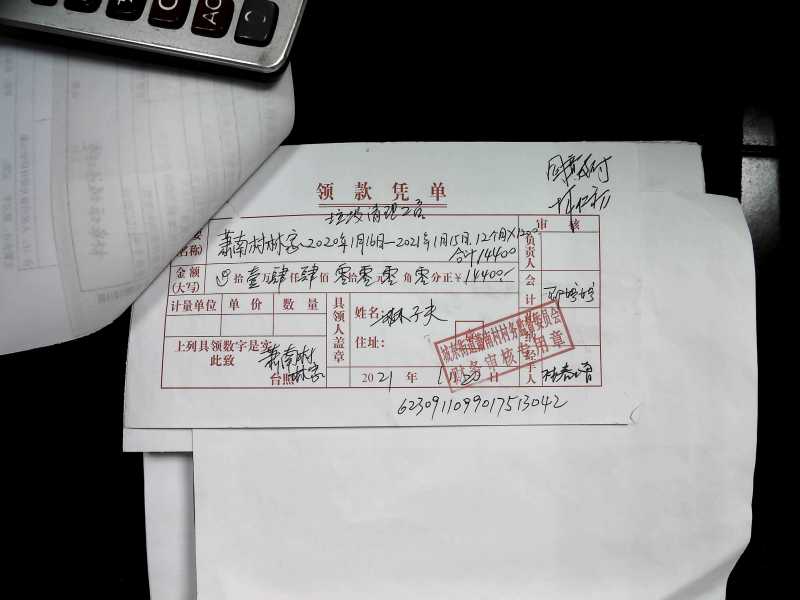 领款凭单
垃圾清理工资
(名称) 萧南村林家 2020年1月16日-2021年1月15日. 12个月×1200
合计14400
审核
负责人
金额(大写) 拾壹万肆仟肆佰零拾零元零角零分正¥14400
会计
计量单位 单价 数量
具领人盖章
姓名: 林子夫
住址:
上列具领数字是实
此致
萧南村
林家
台照
2021年1月20日
城东街道萧南村村务监督委员会
审核专用章
经手人
6230911099017513042